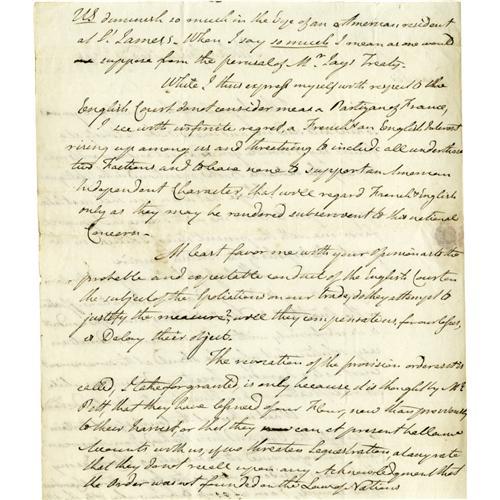 US diminish so much in the Eye of an American resident
at St. James's. When I say so much I mean as one would
suppose from the perusal of Mr. Jays Treaty.
While I thus express myself with respect to the
English Court do not consider me as a Partizan of France,
I see with infinite regret, a French & an English Interest
rising up among us and threatning to include all under those
two Factions and to leave none to support an American
Independent Character, that will regard French & English
only as they may be rendered subservient to this national
Concern.
At least favor me with your Opinion as to the
probable and expectable conduct of the English Court on
the subject of the Spoliations on our trade, do they attempt to
justify the measure? will they compensations, for our losses,
or Delay their object.
The revocation of the provision order as it is
called I take for granted is only because, it is thought by Mr.
Pitt, that they have of our Flour, now than previously
to their harvest or that they can at present ballance
Accounts with us, if we threaten Sequestration, at any rate
that they do not rescell upon any Acknowledgment that
the Order was not founded on the Law of Nations